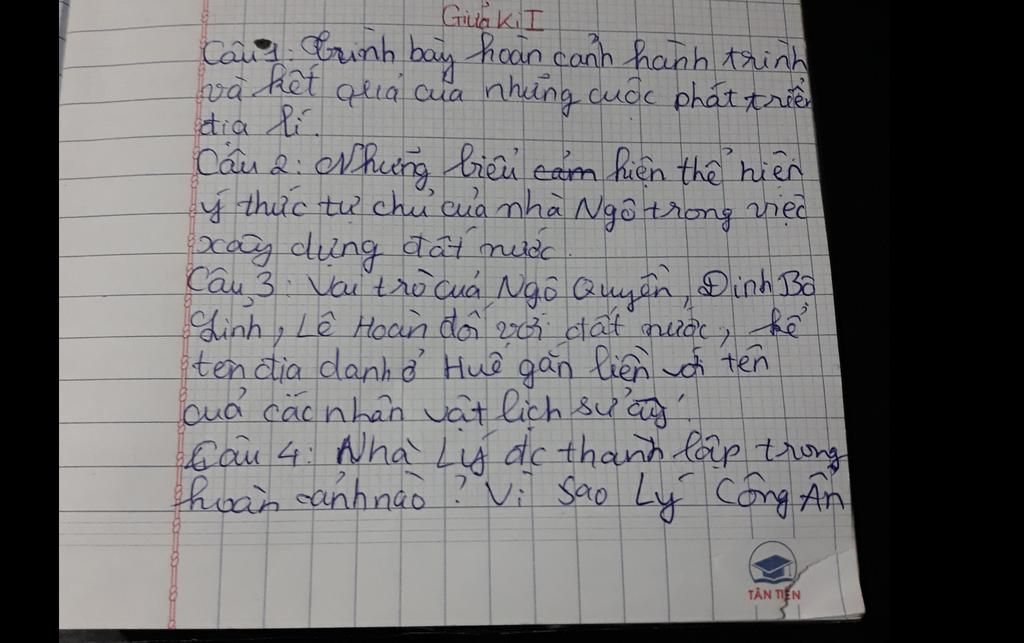 Giữa Kì I
Câu 1: Trình bày hoàn cảnh hành trình
và kết quả của những cuộc phát triển
địa lí.
Câu 2: Những biểu cảm hiện thể hiện
ý thức tự chủ của nhà Ngô trong việc
xây dựng đất nước.
Câu 3: Vai trò của Ngô Quyền, Đinh Bộ
Lĩnh, Lê Hoàn đối với đất nước, kể
tên địa danh ở Huế gắn liền với tên
của các nhân vật lịch sử ấy.
Câu 4: Nhà Lý đc thành lập trong
hoàn cảnh nào? Vì sao Lý Công Ẩn
TÂN TIẾN